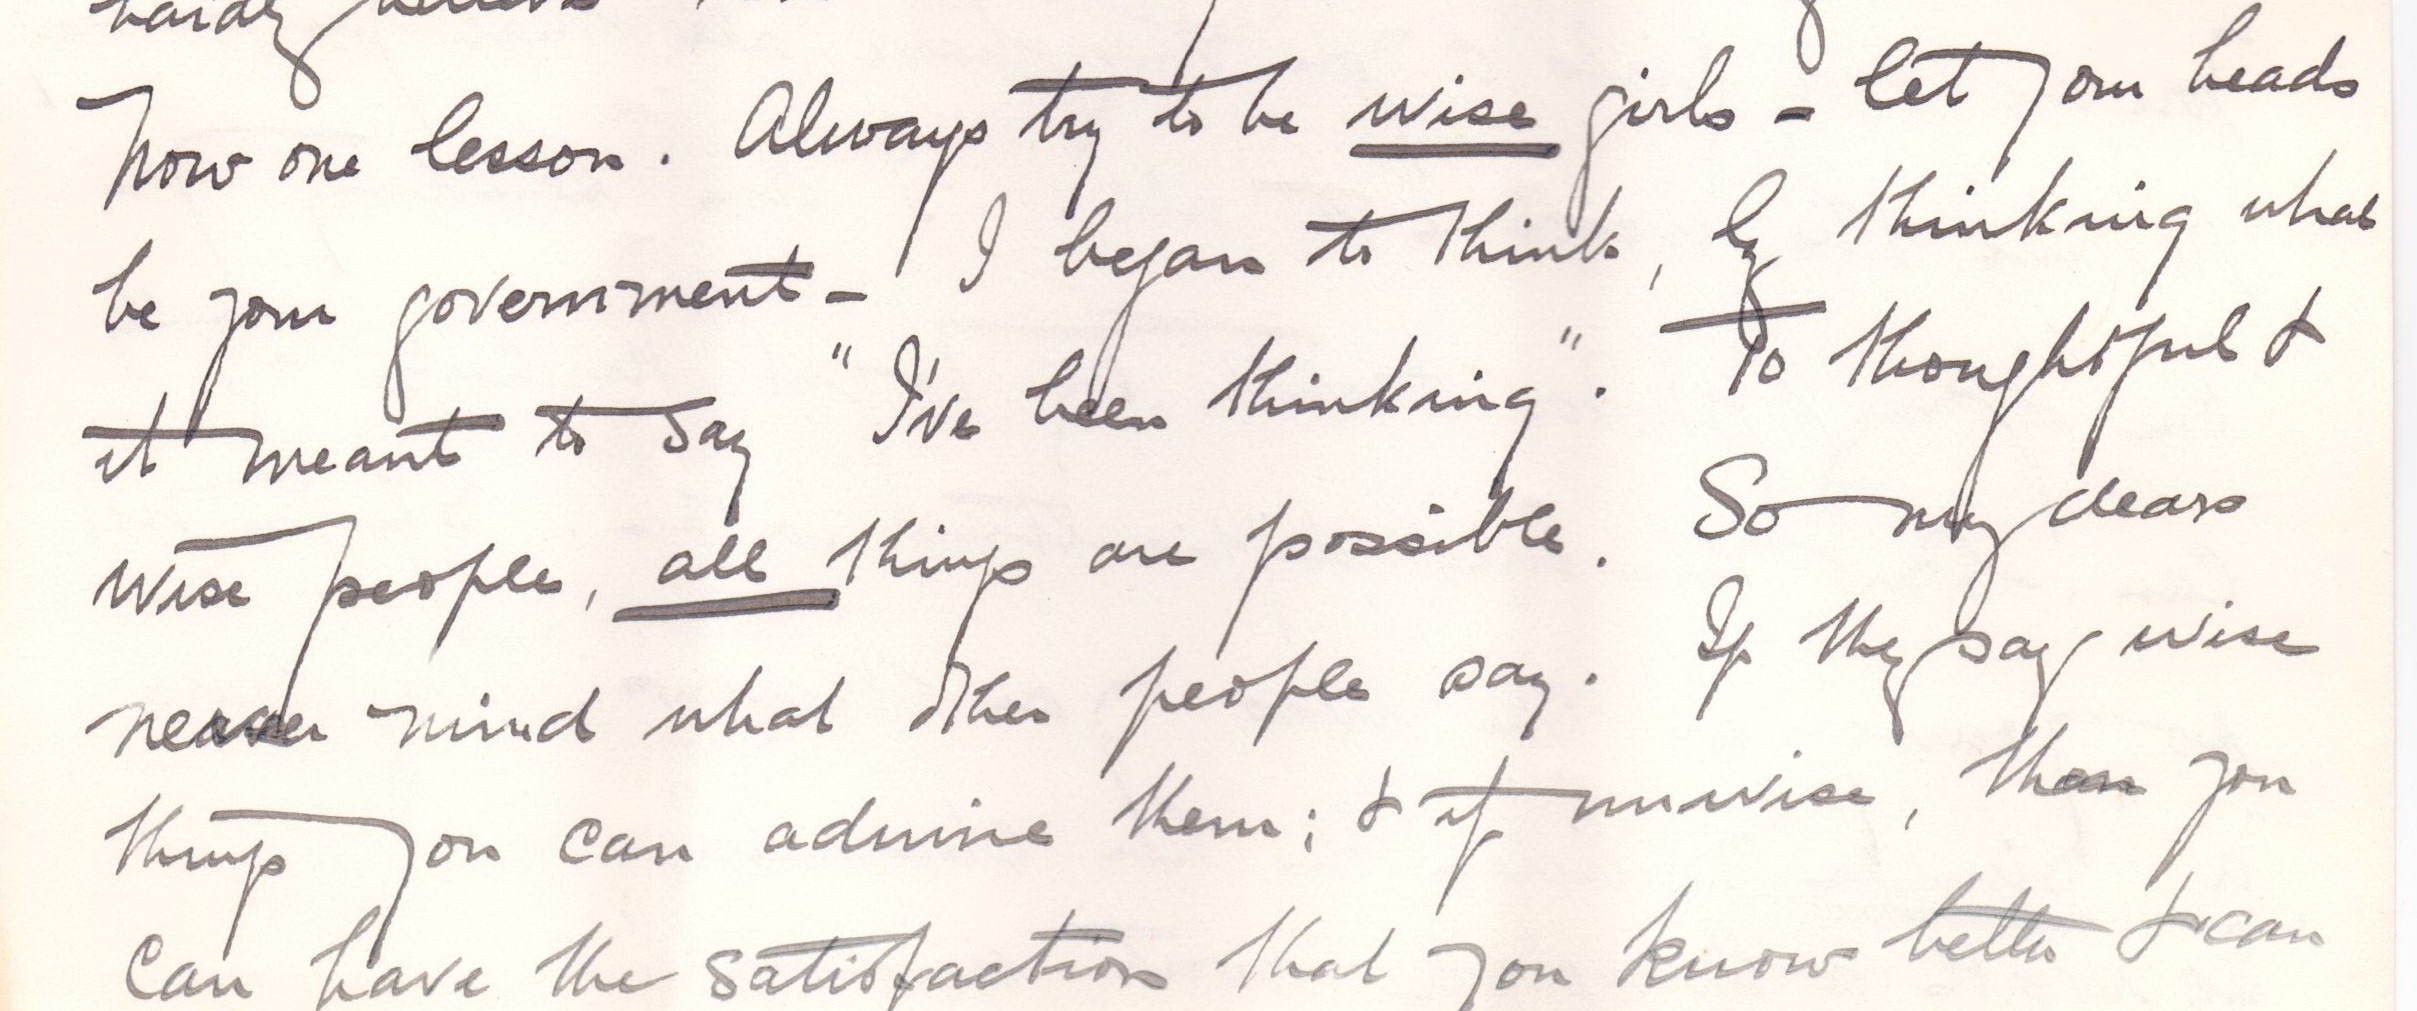 hardy believe
Now one lesson. Always try to be wise girls - let your heads
be your government - I began to think, by thinking what
it meant to say "I've been thinking". To thoughtful &
wise people, all things are possible. So my dears
never mind what other people say. If they say wise
things you can admire them; & if unwise, then you
can have the satisfaction that you know better & can